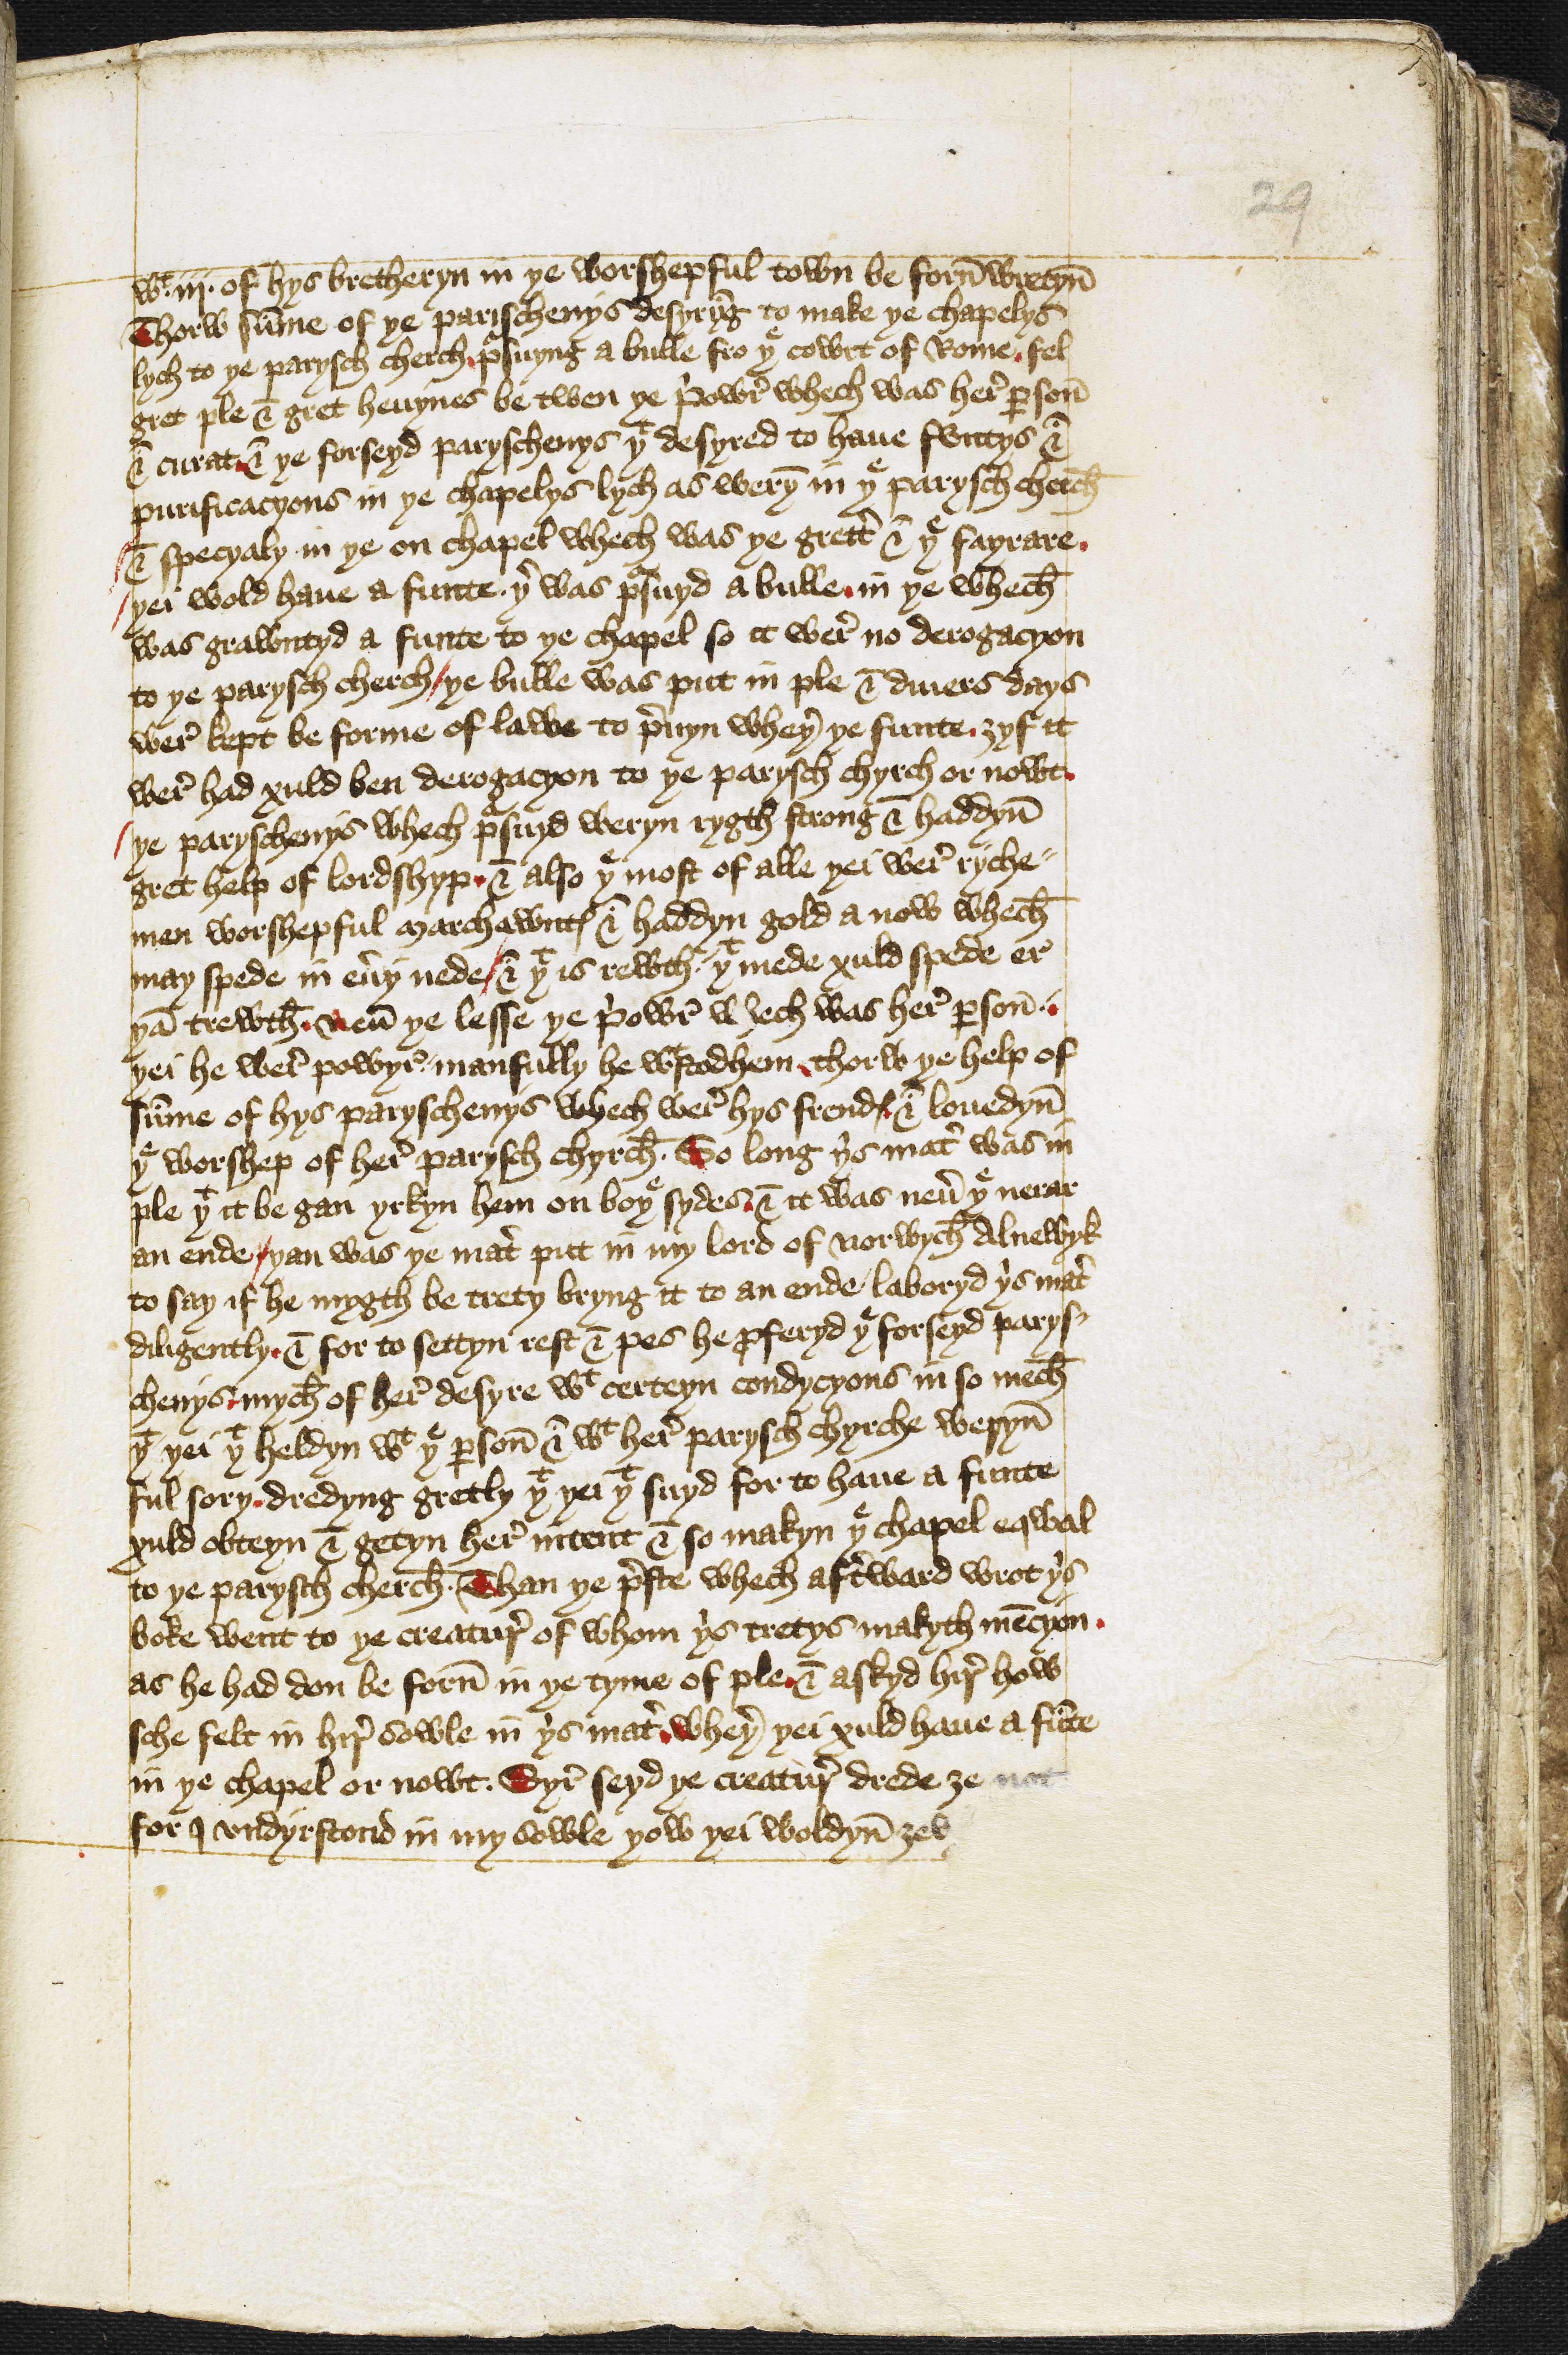 29
wᵗ .iij. of hys bretheryn in ye worshepful town be forn̄ wretyn̄
Thorw sūme of ye parischenys desyryn̄g to make ye chapelys
lych to ye parysch cherch. pᵃsuyng a bulle fro yᵉ cowrt of Rome. fel
gret ple & gret heuynes be twen ye pⁱowr̛ whech was her̛ ꝑson̄
& curat. & ye forseyd paryschenys yᵗ desyred to haue funtys &
purificacyons in ye chapelys lych as werȳ in yᵉ parysch cherch̄
& specyaly in ye on chapel whech was ye grett̛ & yᵉ fayrare.
yei wold haue a funte. y̛ was pᵃsuyd a bulle. in ye whech̄
was grawntyd a funte to ye chapel so it wer̛ no derogacyon
to ye parysch cherch / ye bulle was put in ple & diuers days
wer̛ kept be forme of lawe to p̛uyn whey̛ ye funte. ȝyf it
wer̛ had xuld ben derogacyon to ye parysch chyrch or nowt.
ye paryschenys whech pᵃsuyd weryn rygth strong & haddyn̄
gret help of lordshyp. & also yᵉ most of alle yei wer̛ ryche
men worshepful marchawntꝭ & haddyn gold a now whech̄
may spede in eưy nede / & yᵗ is rewth. yᵗ mede xuld spede er
yā trewth̄. neư ye lesse ye pⁱowr̛ whech was her̛ ꝑson̄.
yei he wer̛ powyr. manfully he wᵗstod hem. thorw ye help of
sūme of hys paryschenys whech wer̛ hys frendꝭ. & louedyn̄
yᵉ worshep of her̛ parysch chyrch̄. So long yⁱs mat̛ was in
ple yᵗ it be gan yrkyn hem on boyᵉ sydes. & it was neư yᵉ nerar
an ende / yan was ye mat̛ put in my lord of norwych̄ Alnewyk
to say if he mygth be trety bryng it to an ende / laboryd yⁱs mat̛
diligently. & for to settyn rest & pes he ꝓferyd yᵉ forseyd parys
chenys. mych̄ of her̛ desyre wᵗ certeyn condycyons in so mech̄
yᵗ yei yᵗ heldyn wᵗ yᵉ ꝑson̄ & wᵗ her̛ parysch chyrche weryn̄
ful sory. dredyng gretly yᵗ yei yᵗ suyd for to haue a funte
xuld obteyn & getyn her̛ intent & so makyn yᵉ chapel eqwal
to ye parysch cherch̄. Than ye p̛ste whech aft̛ward wrot yⁱs
boke went to ye creatur̛ of whom yⁱs tretys makyth mēcyon.
as he had don be forn̄ in ye tyme of ple. & askyd hir̛ how
sche felt in hir̛ sowle in yⁱs mat̛. whey̛ yei xuld haue a fūte
in ye chapel or nowt. Syr̛ seyd ye creatur̛ drede ȝe not
for I vndyrstond in my sowle yow yei woldyn̄ ȝeu